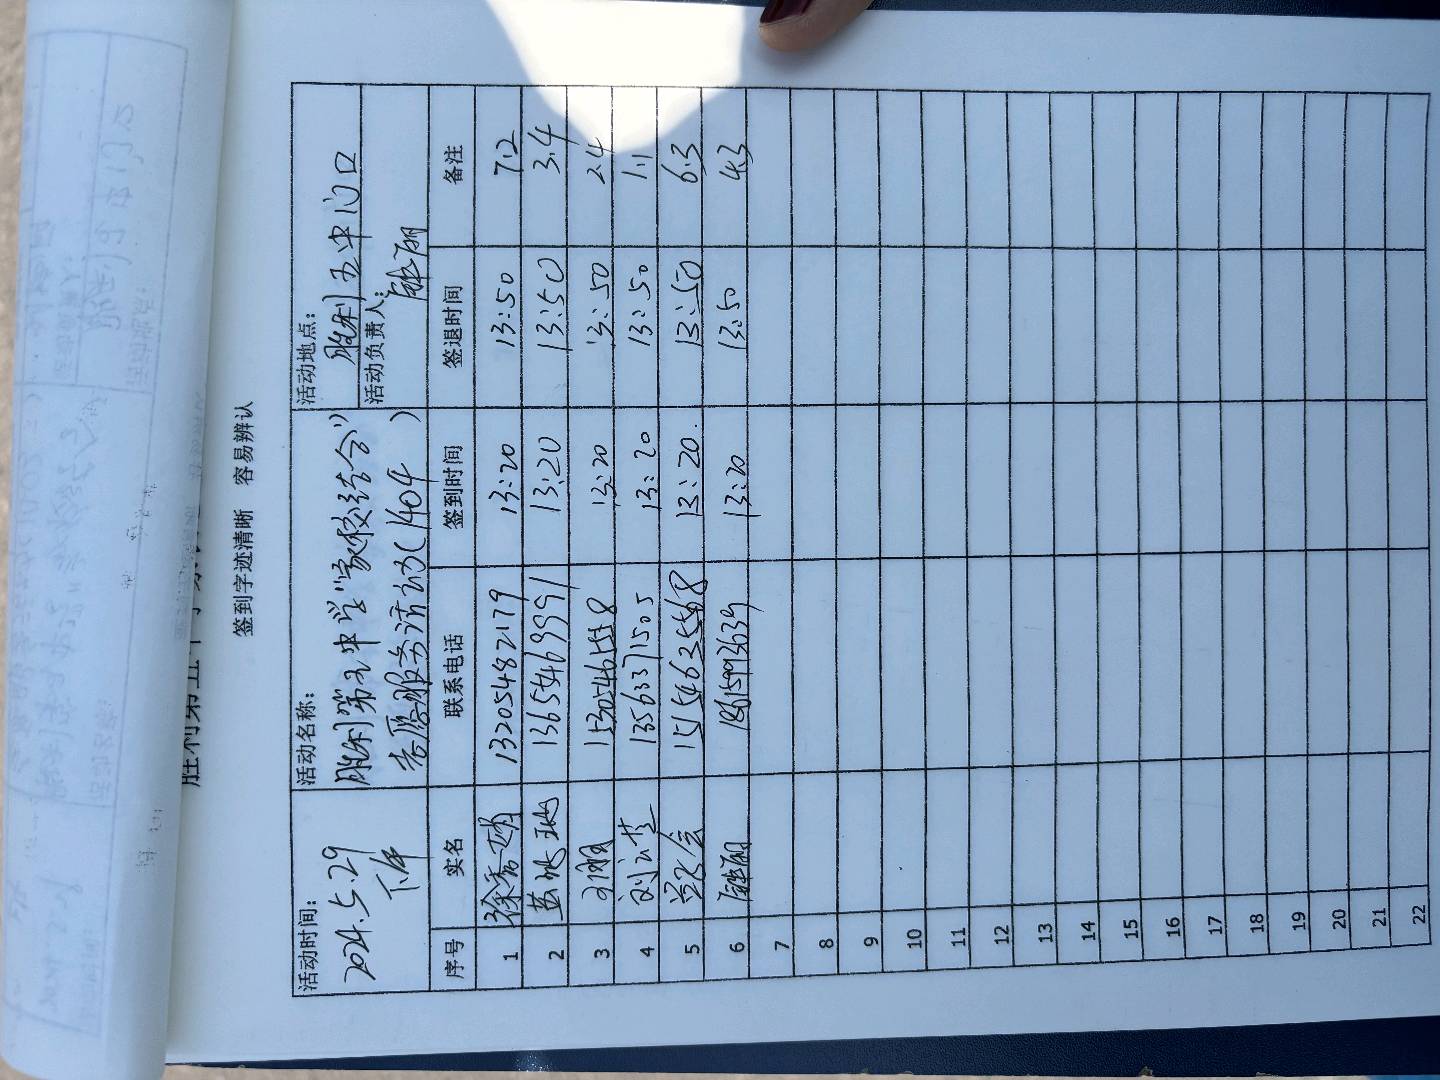 签到字迹清晰 容易辨认
活动时间： 活动名称： 活动地点：
2024.5.29 下午 胜利第五中学“家校结合” 胜利五中门口
志愿服务活动(1404 ) 活动负责人：
序号 实名 联系电话 签到时间 签退时间 备注
1 徐秀娟 13205482179 13:20 13:50 7.2
2 13654699991 13:20 13:50 3.4
3 15305465558 13:20 13:50 2.4
4 13563371505 13:20 13:50 1.1
5 15154635568 13:20. 13:50 6.3
6 18615993639 13:20 13:50 4.3
7
8
9
10
11
12
13
14
15
16
17
18
19
20
21
22